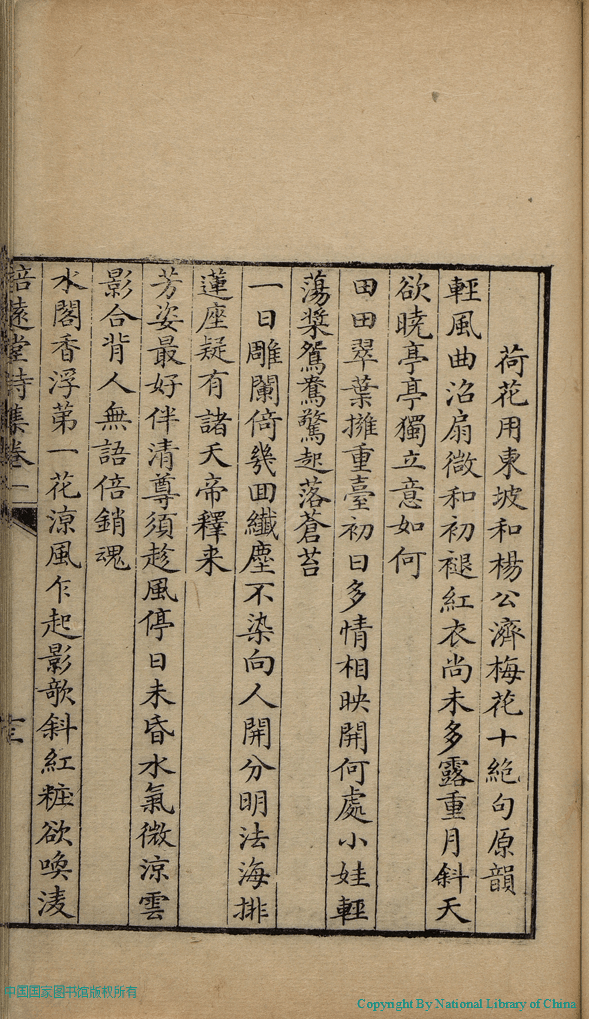 荷花用東坡和楊公濟梅花十絕句原韻
輕風曲沼扇微和初褪紅衣尚未多露重月斜天
欲曉亭亭獨立意如何
田田翠葉擁重臺初日多情相映開何處小娃輕
蕩槳鴛鴦驚起落蒼苔
一日雕闌倚幾回纖塵不染向人開分明法海排
蓮座疑有諸天帝釋来
芳姿最好伴清尊須趁風停日未昏水氣微涼雲
影合背人無語倍銷魂
水閣香浮第一花涼風乍起影欹斜紅粧欲喚淩
培遠堂詩集卷一
中国国家图书馆版权所有
Copyright By National Library of China